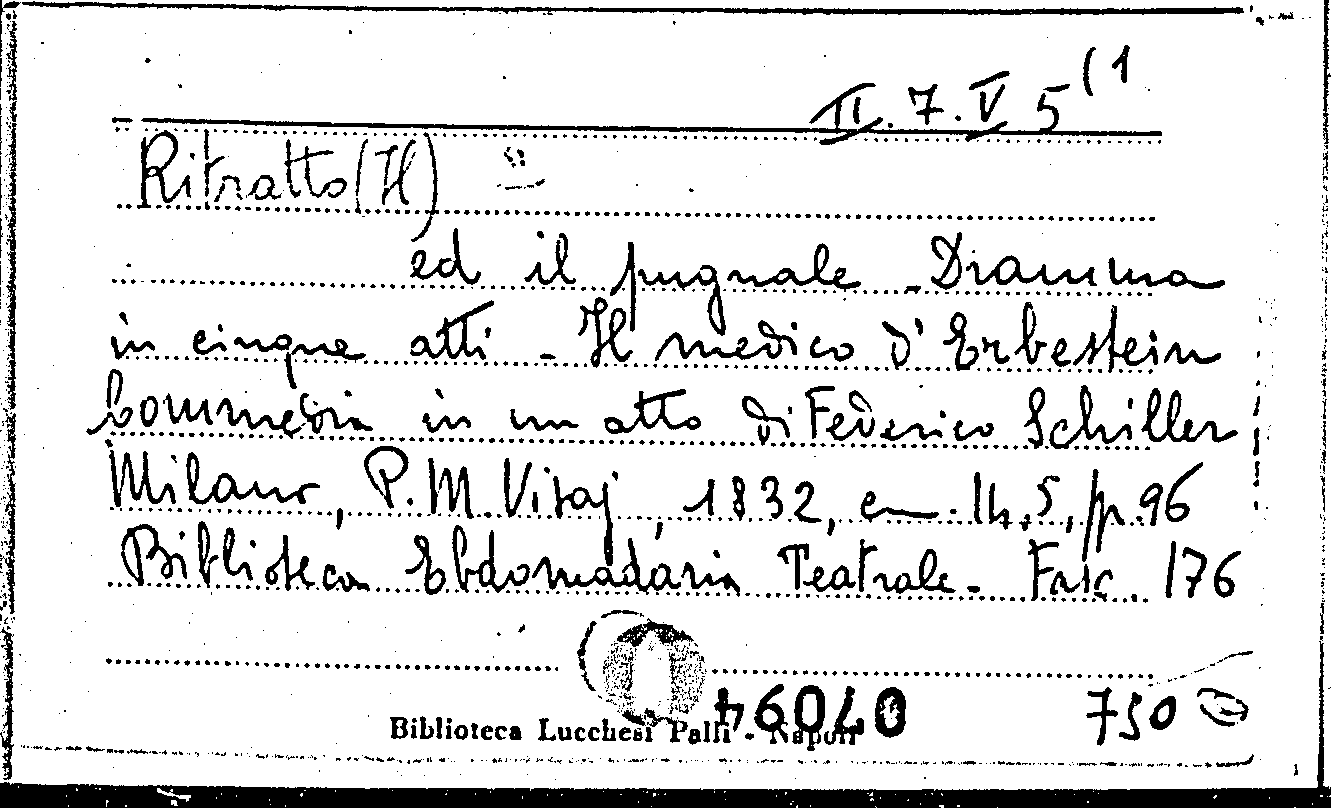 II. 7. V 5 (1
Ritratto (Il)
ed il pugnale - Dramma
in cinque atti - Il medico d'Erbestein
Commedia in un atto di Federico Schiller
Milano, P. M. Visaj, 1832, cm. 14,5, pp. 96
Biblioteca Ebdomadaria Teatrale - Fasc. 176
Biblioteca Lucchesi Palli - Napoli
750